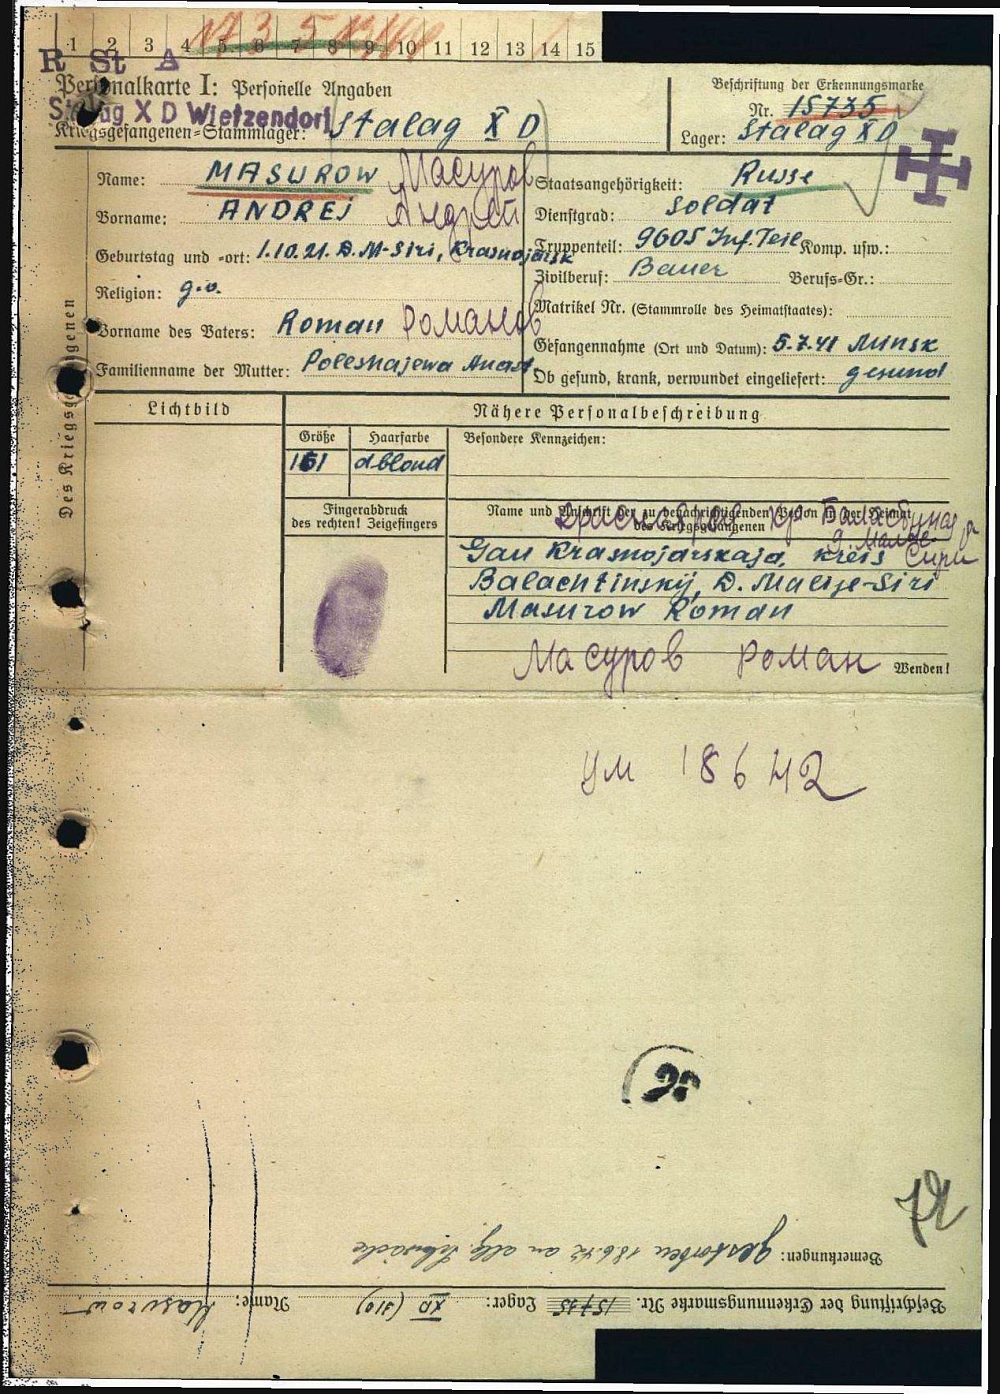 1 2 3 4 5 6 7 8 9 10 11 12 13 14 15
R St A
Personalkarte I: Personelle Angaben
Beschriftung der Erkennungsmarke
Stalag X D Wietzendorf
Nr. 15735
Kriegsgefangenen-Stammlager: Stalag X D
Lager: Stalag X D
Des Kriegsgefangenen
Name: MASUROW Масуров
Staatsangehörigkeit: Russe
Vorname: ANDREJ Андрей
Dienstgrad: Soldat
Geburtstag und -ort: 1.10.21. D. M-Siri, Krasnojarsk
Truppenteil: 9605 Inf. Teil Komp. usw.:
Religion: g.o.
Zivilberuf: Bauer Berufs-Gr.:
Vorname des Vaters: Roman Романов
Matrikel Nr. (Stammrolle des Heimatstaates):
Gefangennahme (Ort und Datum): 5.7.41 Minsk
Familienname der Mutter:
Ob gesund, krank, verwundet eingeliefert: gesund
Lichtbild
Nähere Personalbeschreibung
Größe Haarfarbe Besondere Kennzeichen:
161 dblond
Fingerabdruck
des rechten! Zeigefingers
Name und Anschrift der zu benachrichtigenden Person in der Heimat
des Kriegsgefangenen
Сири
Gau Krasnojarskaja, Kreis
Balachtinskij, D. Malyje-Siri
Masurow Roman
Масуров Роман
Wenden!
ум 18 6 42
Bemerkungen: gestorben 18.6.42 an allg. Schwäche
Beschriftung der Erkennungsmarke Nr. 15735 Lager: XD (310) Name: Masurow